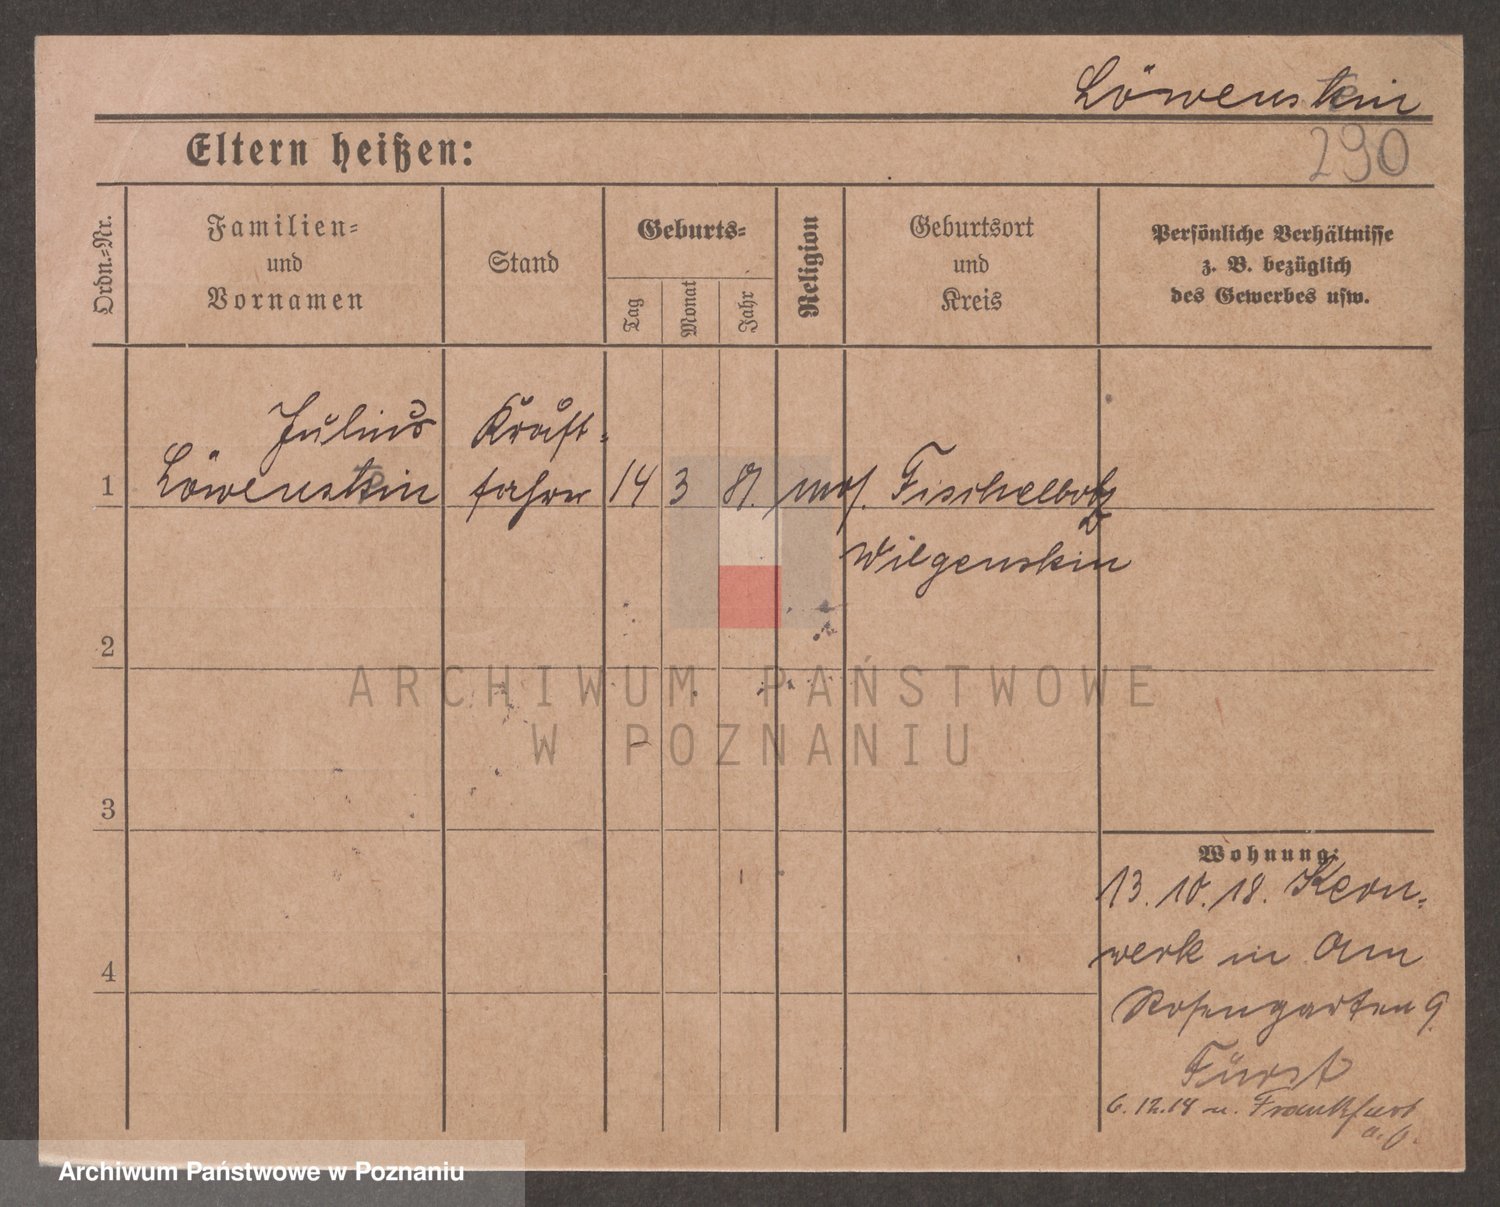 Löwenstein
290
Eltern heißen:
Ordn.-Nr.
Familien-
und
Vornamen
Stand
Geburts-
Tag
Monat
Jahr
Religion
Geburtsort
und
Kreis
Persönliche Verhältnisse
z. B. bezüglich
des Gewerbes usw.
Julius
Kraft-
1 Löwenstein fahrer 14 3 81. mos.
2
3
4
Wohnung:
13. 10. 18. Kern-
werk in Am
Rosengarten 9.
Fürst
6. 12. 18 n. Frankfurt
a. O.
ARCHIWUM PAŃSTWOWE
W POZNANIU
Archiwum Państwowe w Poznaniu